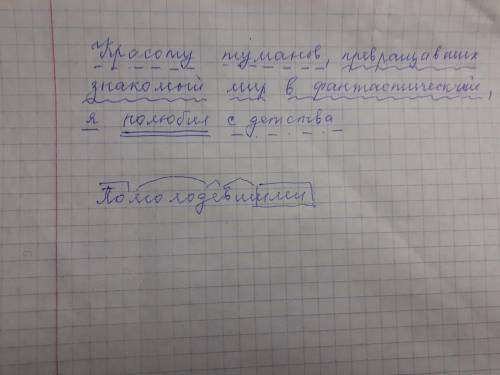 Красоту туманов, превращавших
знакомый мир в фантастический,
я полюбил с детства
Помолодевшими